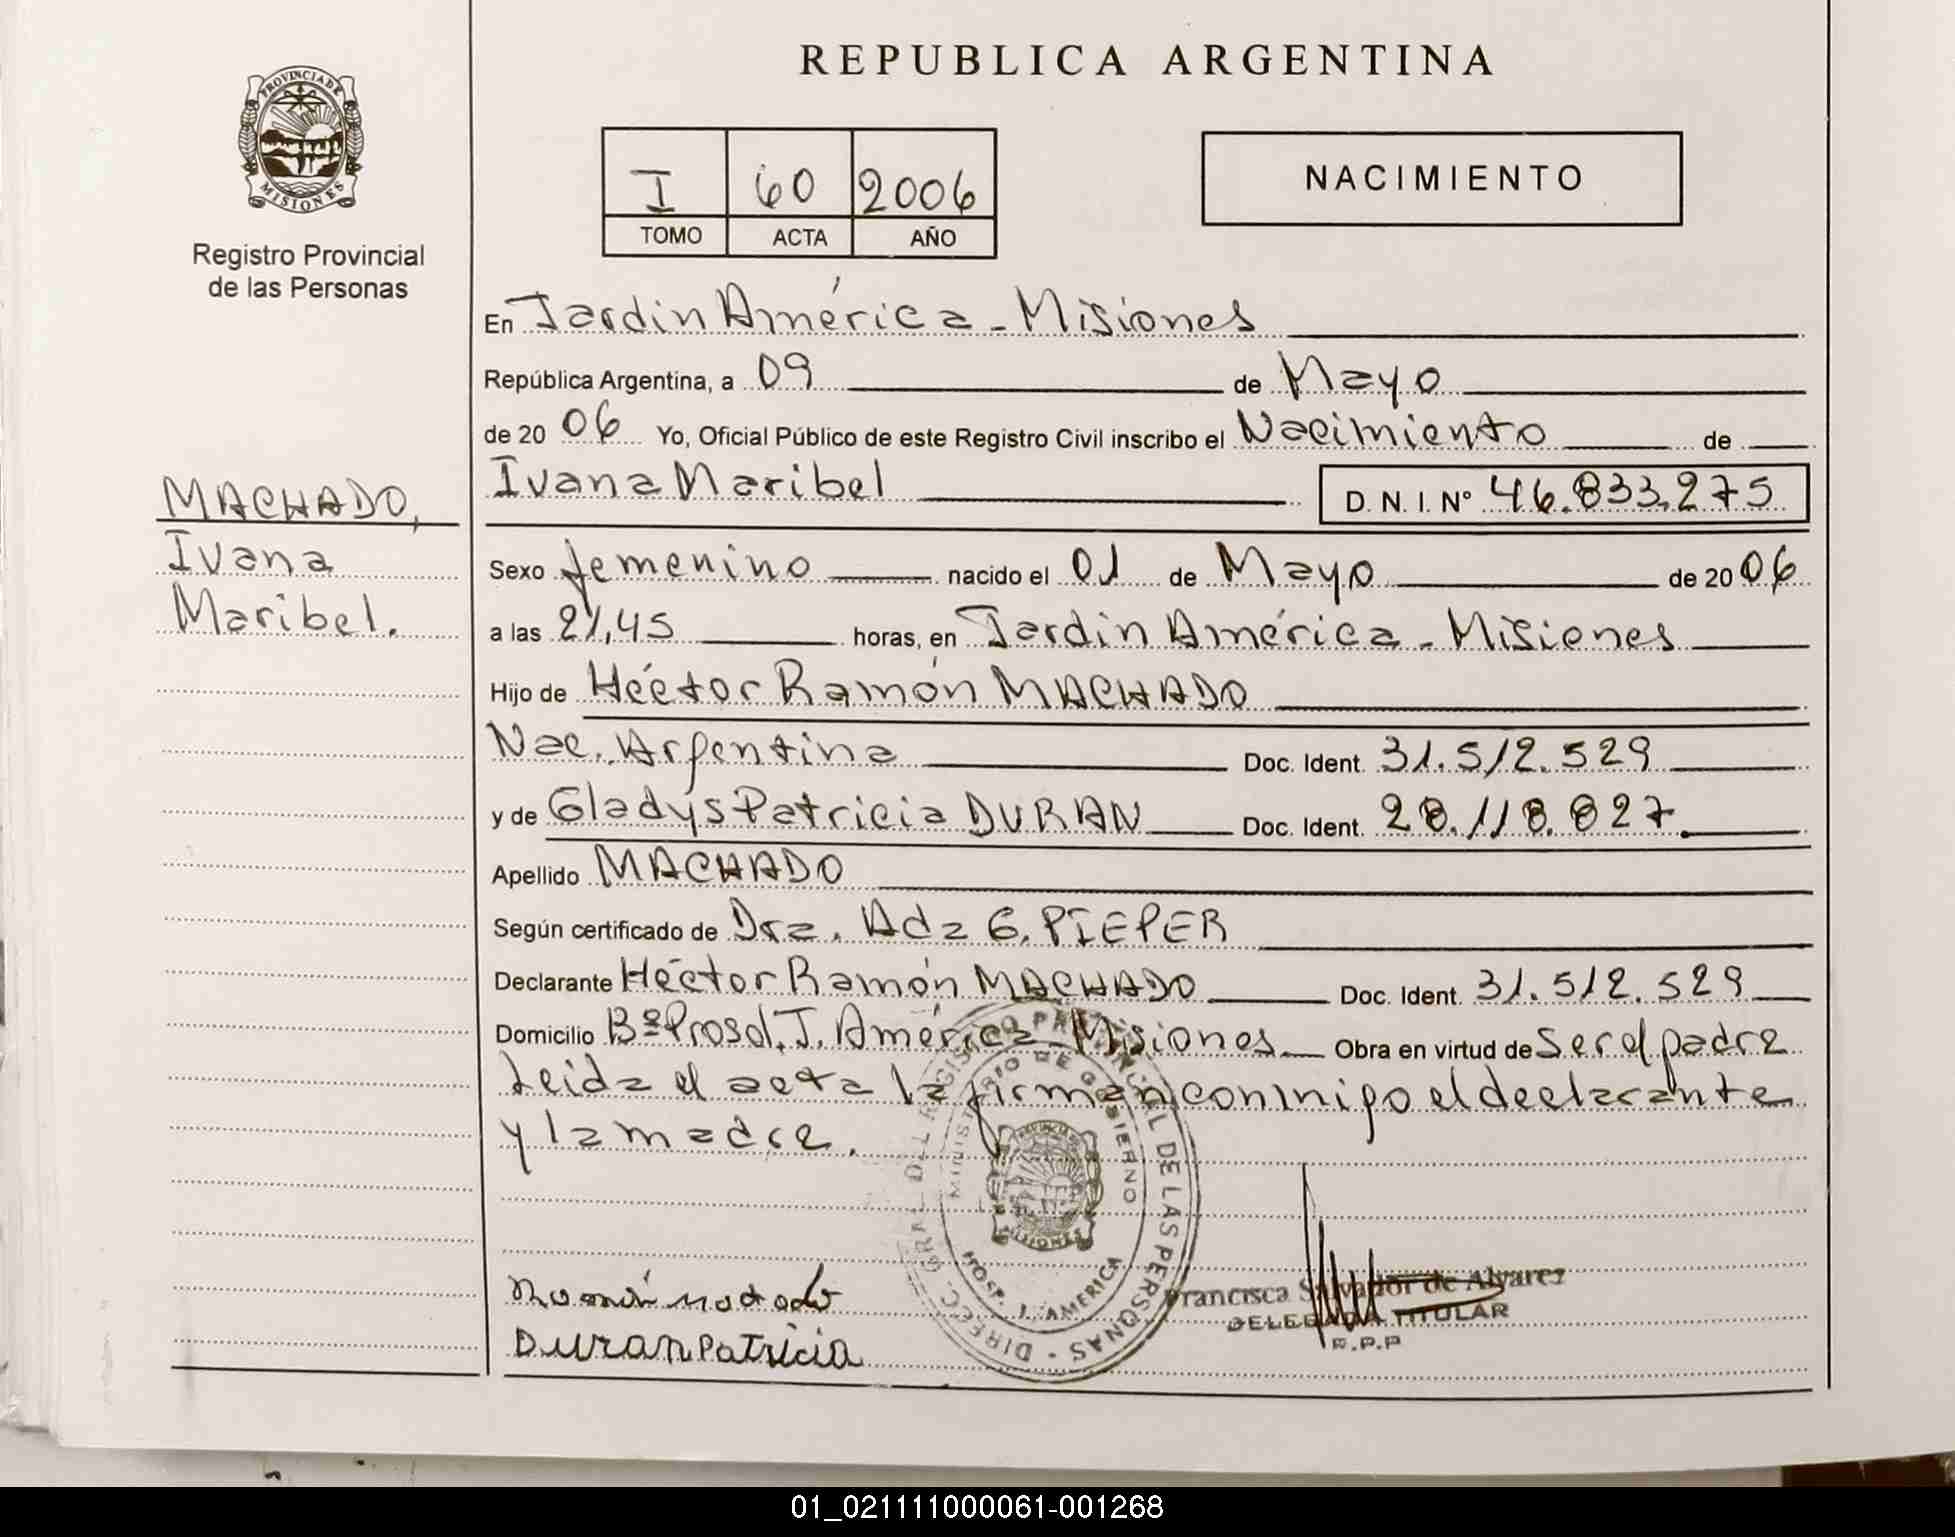 REPUBLICA ARGENTINA
PROVINCIA DE
MISIONES
Registro Provincial
de las Personas
I 60 2006
TOMO ACTA AÑO
NACIMIENTO
En Jardin América - Misiones
República Argentina, a 09 de Mayo
de 20 06 Yo, Oficial Público de este Registro Civil inscribo el Nacimiento de
Ivana Maribel D. N. I. Nº 46.833.275
MACHADO,
Ivana
Maribel.
Sexo femenino nacido el 01 de Mayo de 20 06
a las 21,45 horas, en Jardin América - Misiones
Hijo de Héctor Ramón MACHADO
Nac. Argentina Doc. Ident. 31.512.529
y de Gladys Patricia DURAN Doc. Ident. 28.118.827.
Apellido MACHADO
Según certificado de Dra. Ada G. PIEPER
Declarante Héctor Ramón MACHADO Doc. Ident. 31.512.529
Domicilio Bº Prosol. J. América Misiones Obra en virtud de Ser el padre
Leida el acta la firman conmigo el declarante
y la madre.
DIRECC. GRAL. DEL REGISTRO PROVINCIAL DE LAS PERSONAS
MINISTERIO DE GOBIERNO
PROVINCIA DE
MISIONES
HOSP. J. AMERICA
Duran Patricia
Francisca Salvador de Alvarez
DELEGADA TITULAR
R.P.P
01_021111000061-001268